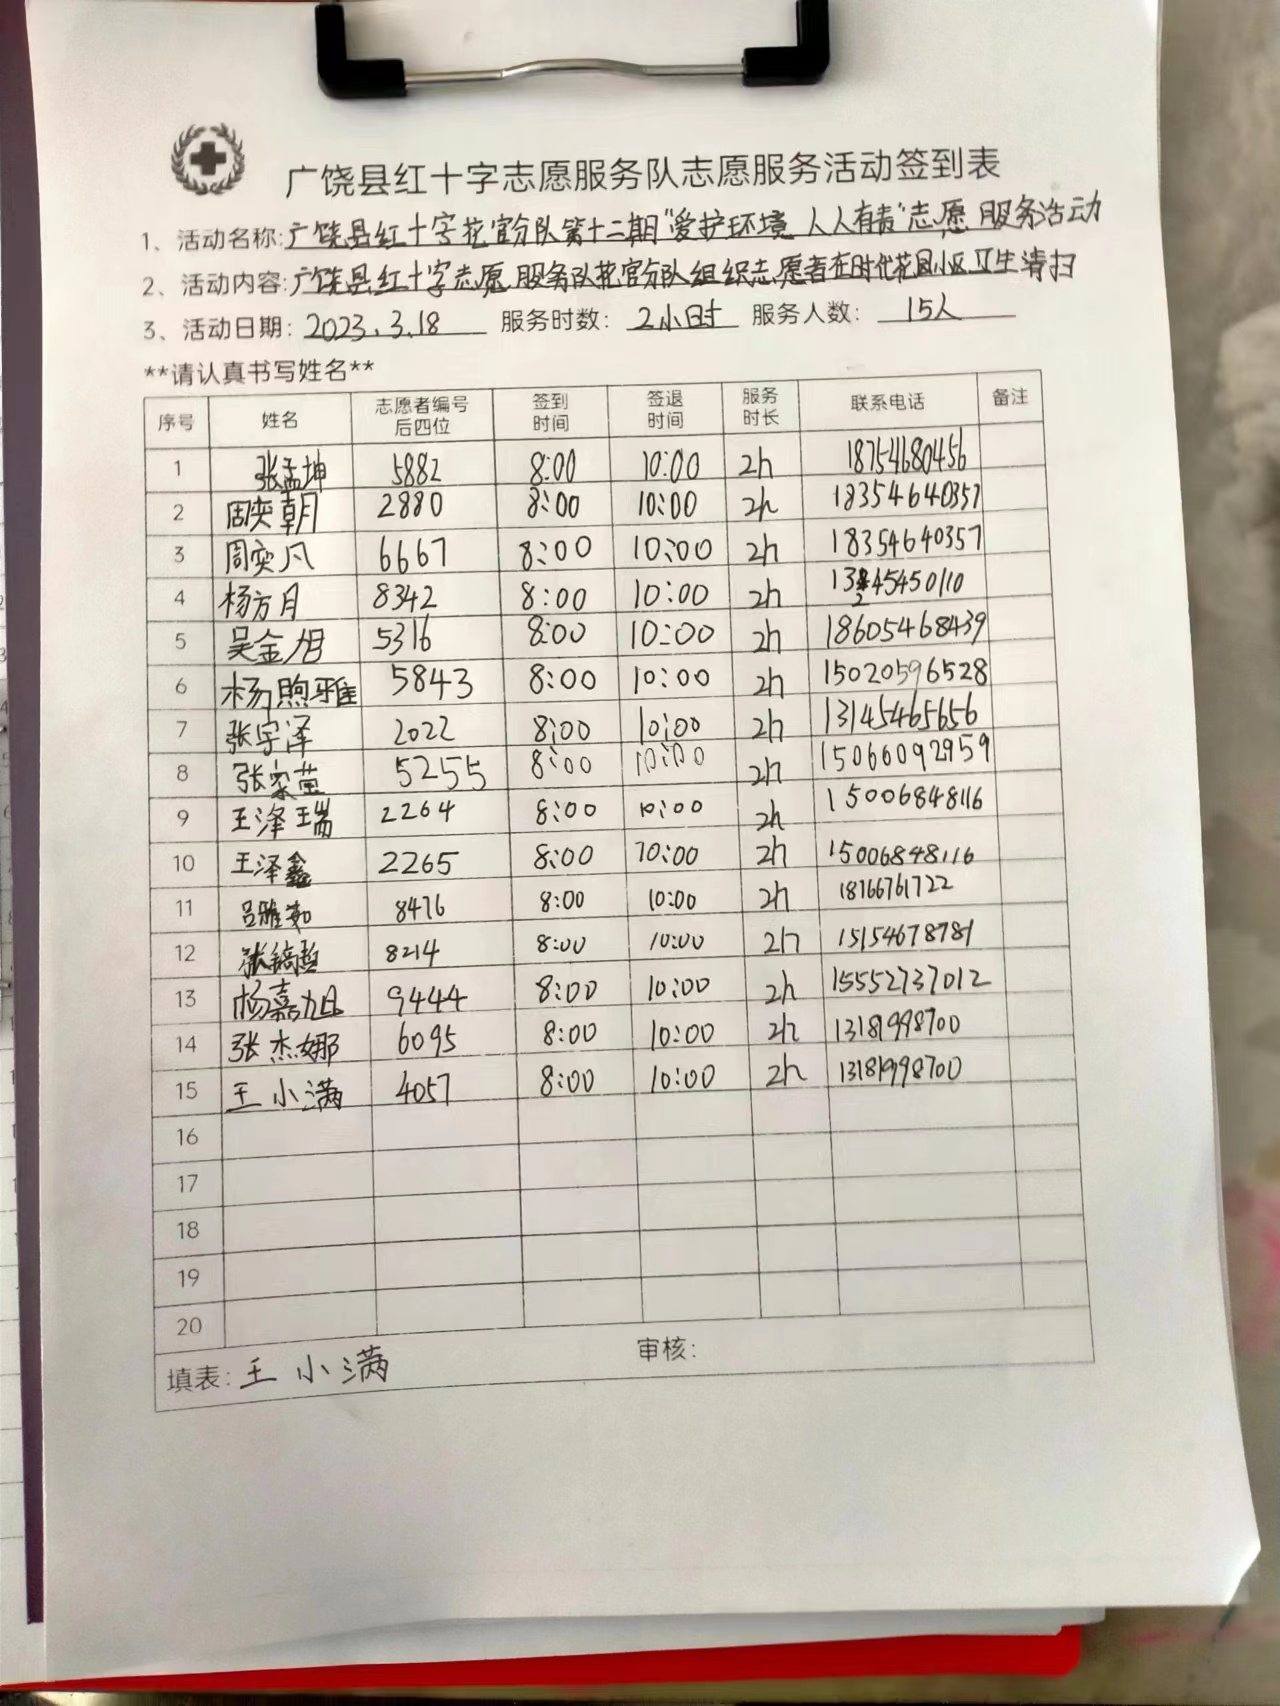 广饶县红十字志愿服务队志愿服务活动签到表
1、活动名称:广饶县红十字花官分队第十二期"爱护环境 人人有责"志愿服务活动
2、活动内容:广饶县红十字志愿服务队花官分队组织志愿者在时代花园小区卫生清扫
3、活动日期: 2023.3.18 服务时数: 2小时 服务人数: 15人
**请认真书写姓名**
序号 姓名 志愿者编号后四位 签到时间 签退时间 服务时长 联系电话 备注
1 张孟坤 5882 8:00 10:00 2h 18754680456
2 周奕朝 2880 8:00 10:00 2h 18354640357
3 周奕凡 6667 8:00 10:00 2h 18354640357
4 杨方月 8342 8:00 10:00 2h 13245450110
5 吴金旭 5316 8:00 10:00 2h 18605468439
6 杨煦雅 5843 8:00 10:00 2h 15020596528
7 张宇泽 2022 8:00 10:00 2h 13145465656
8 张家萱 5255 8:00 10:00 2h 15066092959
9 王泽瑞 2264 8:00 10:00 2h 15006848116
10 王泽鑫 2265 8:00 10:00 2h 15006848116
11 吕雅茹 8476 8:00 10:00 2h 18766761722
12 张镐哲 8214 8:00 10:00 2h 15154678781
13 杨嘉旭 9444 8:00 10:00 2h 15552737012
14 张杰娜 6095 8:00 10:00 2h 13181998700
15 王小满 4057 8:00 10:00 2h 13181998700
16
17
18
19
20
填表: 王小满 审核: